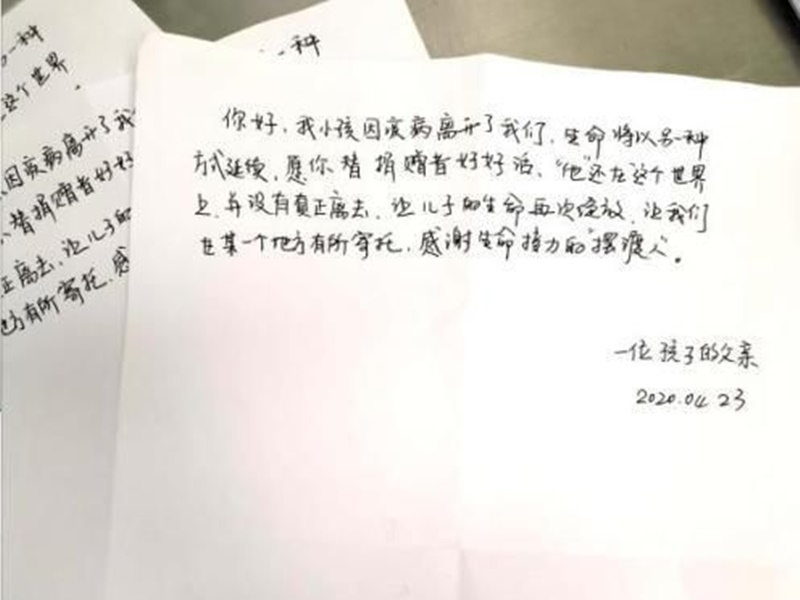 另一种
这个世界
因疾病离开了我
替捐赠者好好
正离去,让儿子的
地方有所寄托,感
一种
你好,我小孩因疾病离开了我们,生命将以另一种
方式延续,愿你替捐赠者好好活,“他”还在这个世界
上,并没有真正离去,让儿子的生命再次绽放,让我们
在某一个地方有所寄托,感谢生命接力的“摆渡人”。
一位孩子的父亲
2020.04.23